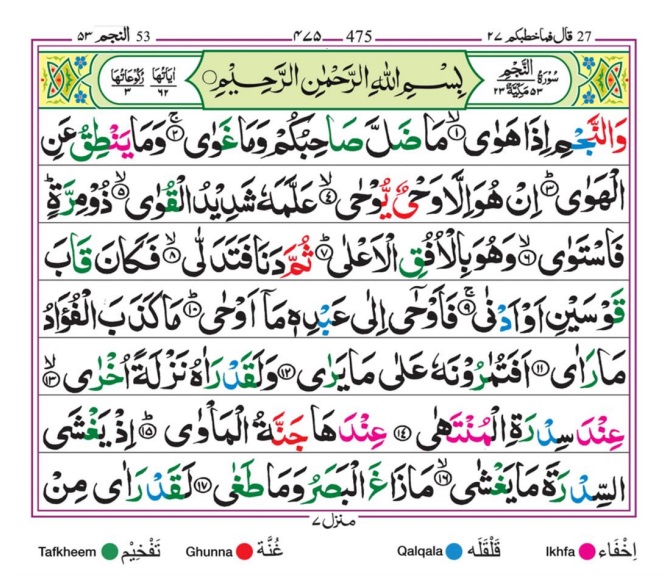 27 قال فما خطبكم ٢٧
475 ٤٧٥
53 النجم ٥٣
سُوْرَةُ النَّجْمِ مَكِّيَّةٌ ٥٣ ٢٣
بِسْمِ اللّٰهِ الرَّحْمٰنِ الرَّحِيْمِ
اٰيَاتُهَا ٦٢ رُكُوْعَاتُهَا ٣
وَالنَّجْمِ اِذَا هَوٰى ۙ﴿١﴾ مَا ضَلَّ صَاحِبُكُمْ وَمَا غَوٰى ۚ﴿٢﴾ وَمَا يَنْطِقُ عَنِ
الْهَوٰى ؕ﴿٣﴾ اِنْ هُوَ اِلَّا وَحْيٌ يُّوْحٰى ۙ﴿٤﴾ عَلَّمَهٗ شَدِيْدُ الْقُوٰى ۙ﴿٥﴾ ذُوْ مِرَّةٍ ؕ
فَاسْتَوٰى ۙ﴿٦﴾ وَهُوَ بِالْاُفُقِ الْاَعْلٰى ؕ﴿٧﴾ ثُمَّ دَنَا فَتَدَلّٰى ۙ﴿٨﴾ فَكَانَ قَابَ
قَوْسَيْنِ اَوْ اَدْنٰى ۚ﴿٩﴾ فَاَوْحٰۤى اِلٰى عَبْدِهٖ مَاۤ اَوْحٰى ؕ﴿١٠﴾ مَا كَذَبَ الْفُؤَادُ
مَا رَاٰى ﴿١١﴾ اَفَتُمٰرُوْنَهٗ عَلٰى مَا يَرٰى ﴿١٢﴾ وَلَقَدْ رَاٰهُ نَزْلَةً اُخْرٰى ۙ﴿١٣﴾
عِنْدَ سِدْرَةِ الْمُنْتَهٰى ﴿١٤﴾ عِنْدَهَا جَنَّةُ الْمَاْوٰى ؕ﴿١٥﴾ اِذْ يَغْشَى
السِّدْرَةَ مَا يَغْشٰى ۙ﴿١٦﴾ مَا زَاغَ الْبَصَرُ وَمَا طَغٰى ﴿١٧﴾ لَقَدْ رَاٰى مِنْ
منزل ٧
Tafkheem تَفْخِيْم Ghunna غُنَّة Qalqala قَلْقَلَه Ikhfa اِخْفَاء